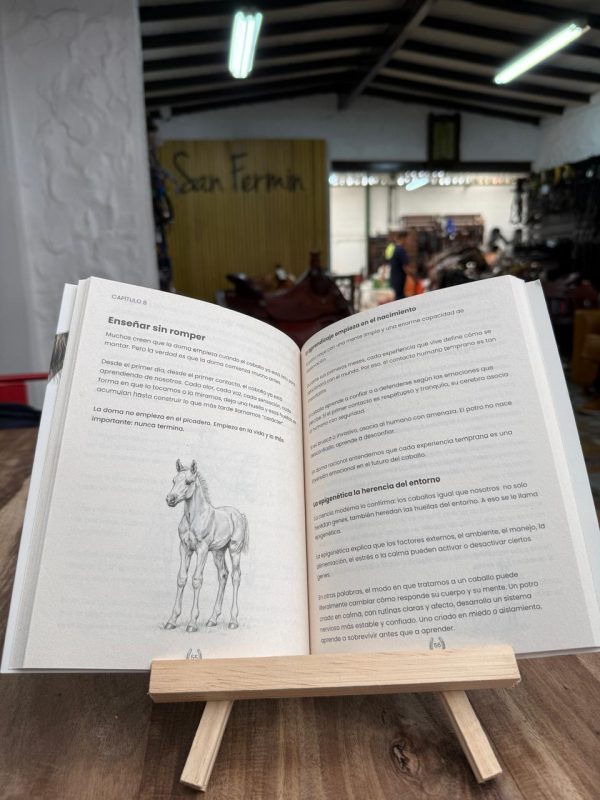 San Fermin
CAPÍTULO 8
Enseñar sin romper
Muchos creen que la doma empieza cuando el caballo ya está listo para
montar. Pero la verdad es que la doma comienza mucho antes.
Desde el primer día, desde el primer contacto, el caballo ya está
aprendiendo de nosotros. Cada olor, cada voz, cada sensación, cada
forma en que lo tocamos o lo miramos, deja una huella y esas huellas se
acumulan hasta construir lo que más tarde llamamos "carácter".
La doma no empieza en el picadero. Empieza en la vida y lo más
importante: nunca termina.
55
aprendizaje empieza en el nacimiento
nace con una mente limpia y una enorme capacidad de
primeros meses, cada experiencia que vive define cómo se
con el mundo. Por eso, el contacto humano temprano es tan
aprende a confiar o a defenderse según las emociones que
percibe. Si el primer contacto es respetuoso y tranquilo, su cerebro asocia
al humano con seguridad.
es brusco o invasivo, asocia al humano con amenaza. El potro no nace
desconfiado, aprende a desconfiar.
doma racional entendemos que cada experiencia temprana es una
inversión emocional en el futuro del caballo.
La epigenética la herencia del entorno
La ciencia moderna lo confirma: los caballos igual que nosotros no solo
heredan genes, también heredan las huellas del entorno. A eso se le llama
epigenética.
La epigenética explica que los factores externos, el ambiente, el manejo, la
alimentación, el estrés o la calma pueden activar o desactivar ciertos
genes.
En otras palabras, el modo en que tratamos a un caballo puede
literalmente cambiar cómo responde su cuerpo y su mente. Un potro
criado en calma, con rutinas claras y afecto, desarrolla un sistema
nervioso más estable y confiado. Uno criado en miedo o aislamiento,
aprende a sobrevivir antes que a aprender.
56